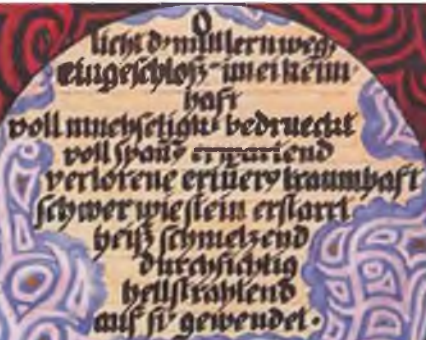 O
licht d· mittlern wegs
eingeschloß· in ei keim
haft
voll bedrueckt
voll erwartend
verlorene traumhaft
schwer wie stein erstarrt
heiß schmelzend
durchsichtig
hellstrahlend
auf si gewendet·